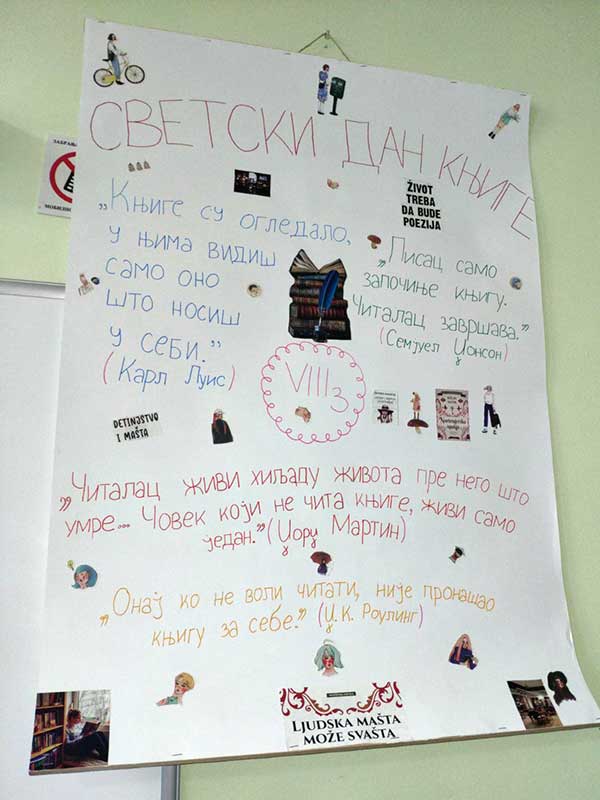 СВЕТСКИ ДАН КЊИГЕ
ЗАБРАЊ
МОБИЛН
ЖИВОТ
ТРЕБА
ДА БУДЕ
POEZIJA
„Књиге су огледало,
у њима видиш
само оно
што носиш
у себи.”
(Карл Луис)
„Писац само
започиње књигу.
Читалац завршава.”
(Семјуел Џонсон)
VIII3
DETINJSTVO
I MAŠTA
„Читалац живи хиљаду живота пре него што
умре... Човек који не чита књиге, живи само
један.” (Џорџ Мартин)
„Онај ко не воли читати, није пронашао
књигу за себе.” (Џ. К. Роулинг)
LJUDSKA MAŠTA
MOŽE SVAŠTA